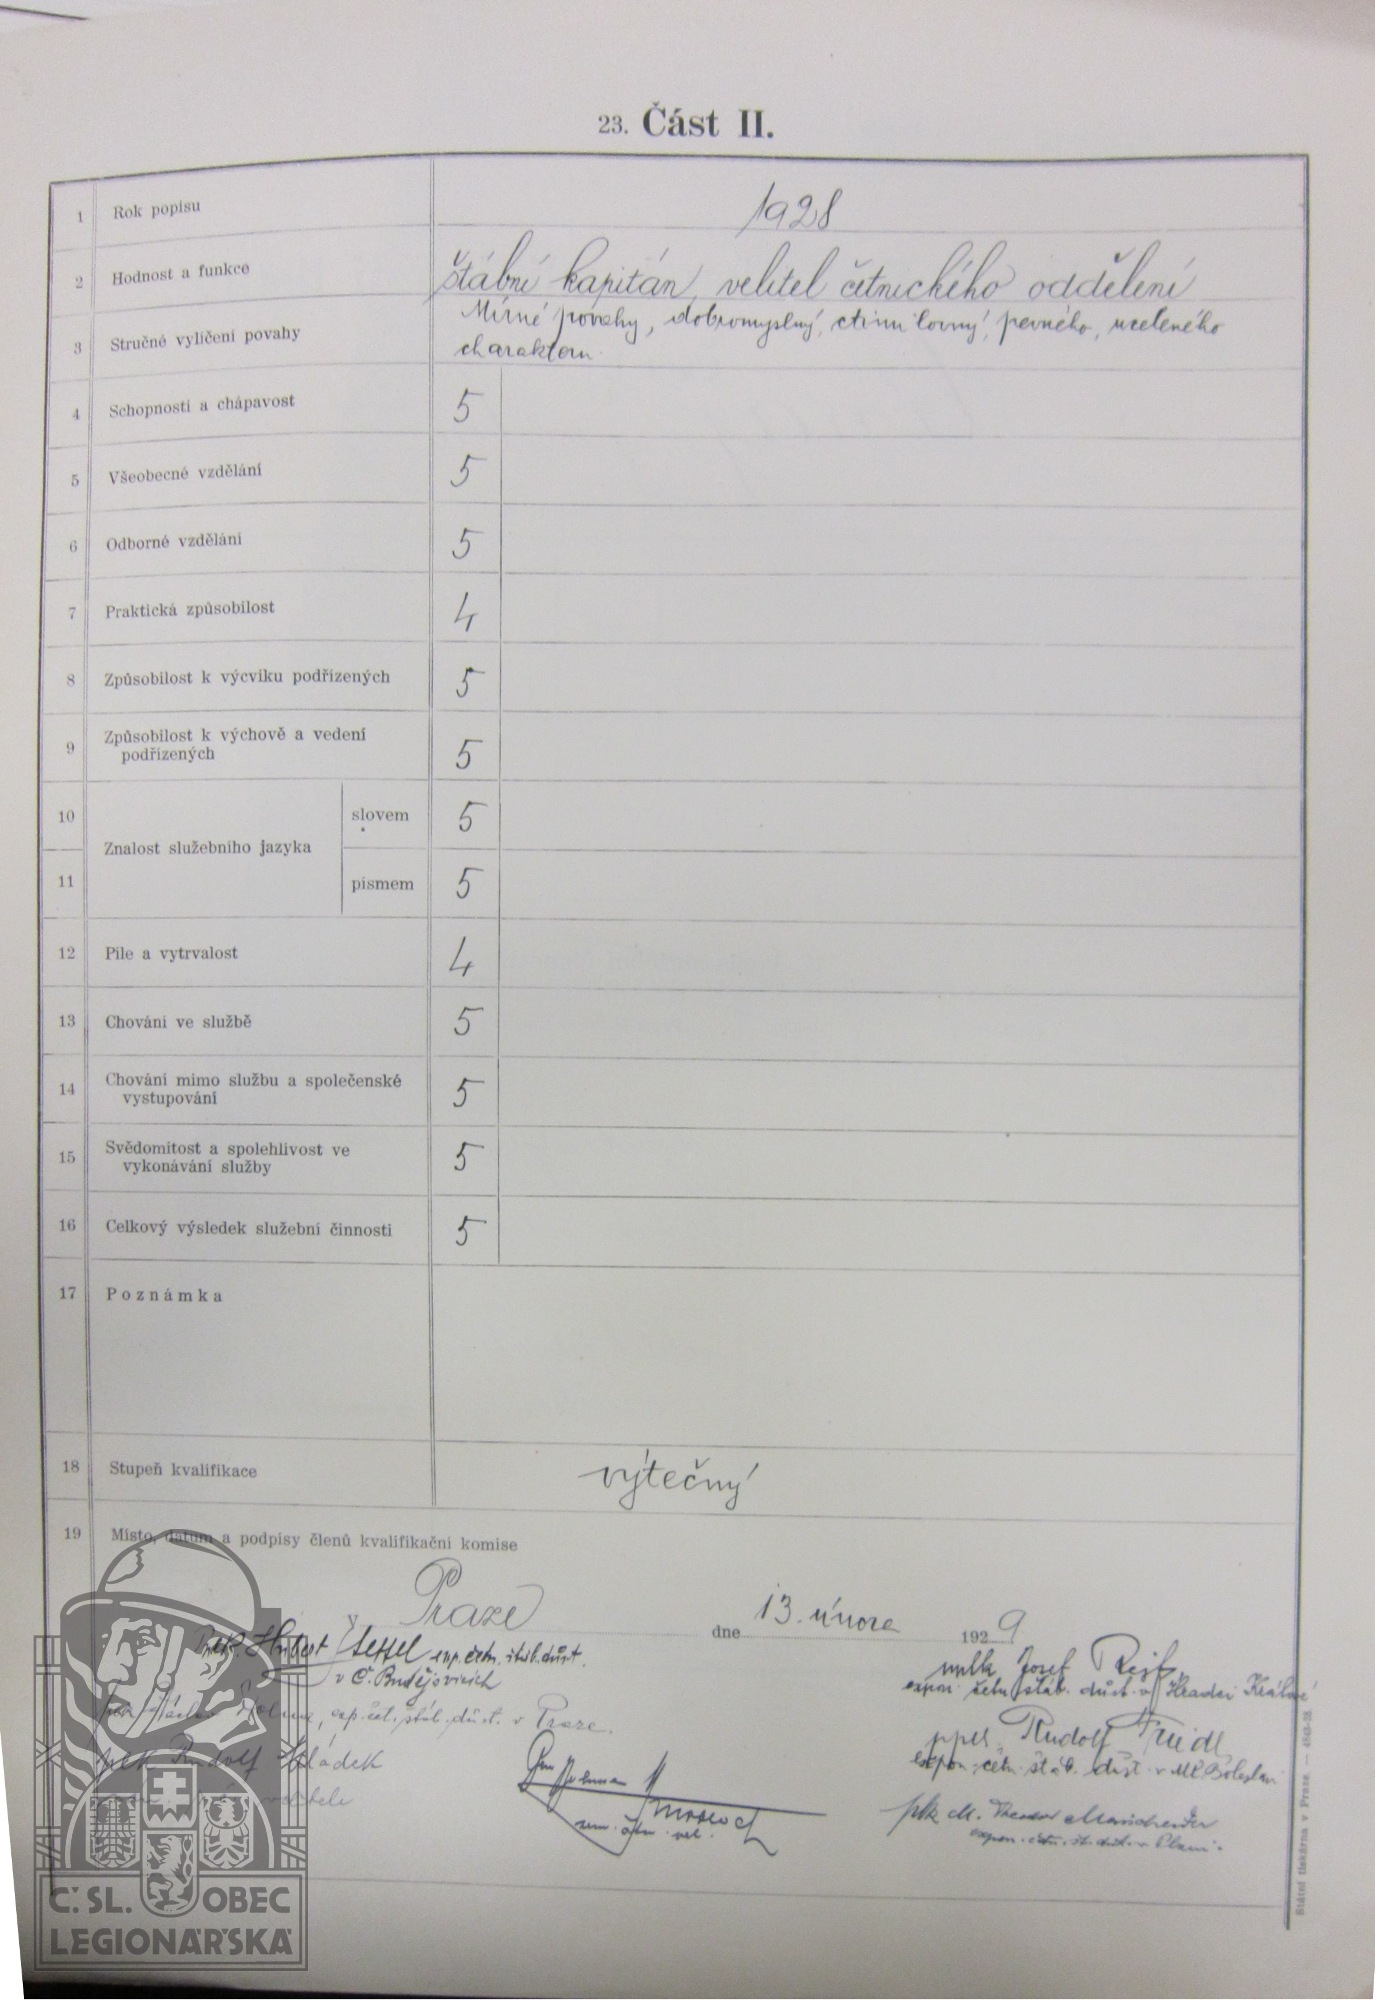 23. Část II.
1 Rok popisu 1928
2 Hodnost a funkce štábní kapitán, velitel četnického oddělení
3 Stručné vylíčení povahy Mírné povahy, dobromyslný, ctimilovný, pevného, uceleného
charakteru
4 Schopnosti a chápavost 5
5 Všeobecné vzdělání 5
6 Odborné vzdělání 5
7 Praktická způsobilost 4
8 Způsobilost k výcviku podřízených 5
9 Způsobilost k výchově a vedení
podřízených 5
10 Znalost služebního jazyka slovem 5
11 písmem 5
12 Píle a vytrvalost 4
13 Chování ve službě 5
14 Chování mimo službu a společenské
vystupování 5
15 Svědomitost a spolehlivost ve
vykonávání služby 5
16 Celkový výsledek služební činnosti 5
17 Poznámka
18 Stupeň kvalifikace výtečný
19 Místo, datum a podpisy členů kvalifikační komise
V Praze dne 13. února 1929
Hubert exp. četn. štáb. důst.
v Č. Budějovicích
exp. čet. štáb. důst. v Praze.
plk Rudolf Hládek
zem. četn. vel.
mplk Josef
expon. četn. štáb. důst. v Hradci Králové
pplk. Rudolf Friedl
expon. četn. štáb. důst. v Ml. Boleslavi
plk M. Theodor
expon. četn. št. důst. v Plzni.
Státní tiskárna v Praze. — 4848-28
Č. SL. OBEC
LEGIONÁŘSKÁ